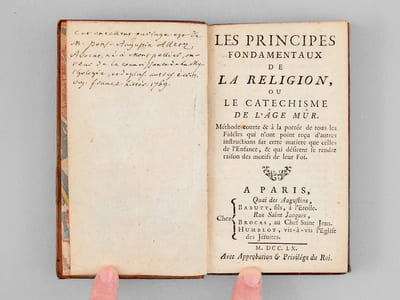 Cet excellent ouvrage est de
M. pons-Augustin Alletz,
Avocat, né à Montpellier,
de la
et
france 1769.
LES PRINCIPES
FONDAMENTAUX
DE
LA RELIGION,
OU
LE CATECHISME
DE L'ÂGE MÛR.
Méthode courte & à la portée de tous les
Fidéles qui n'ont point reçu d'autres
instructions sur cette matiere que celles
de l'Enfance, & qui désirent se rendre
raison des motifs de leur Foi.
A PARIS,
Chez
Quai des Augustins,
BABUTY, fils, à l'Etoile.
Rue Saint Jacques,
BROCAS, au Chef Saint Jean.
HUMBLOT, vis-à-vis l'Eglise
des Jésuites.
M. DCC. LX.
Avec Approbation & Privilége du Roi.